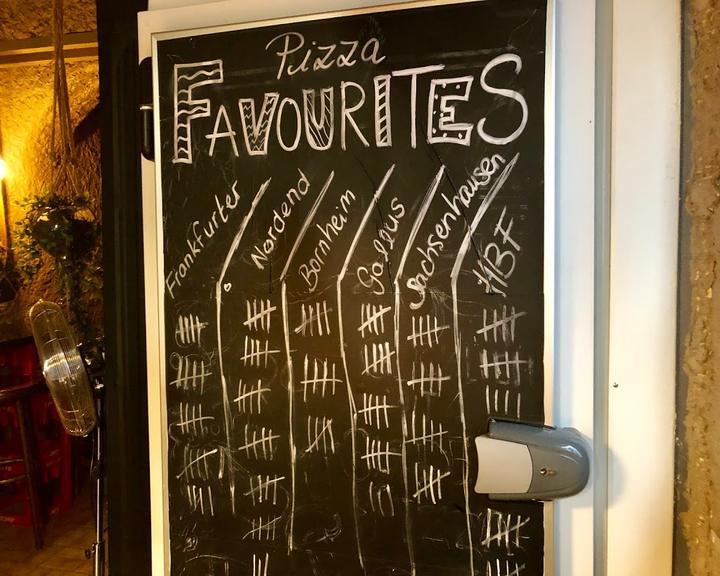 Pizza
FAVOURITES
Frankfurter
Nordend
Bornheim
Gallus
Sachsenhausen
HBF